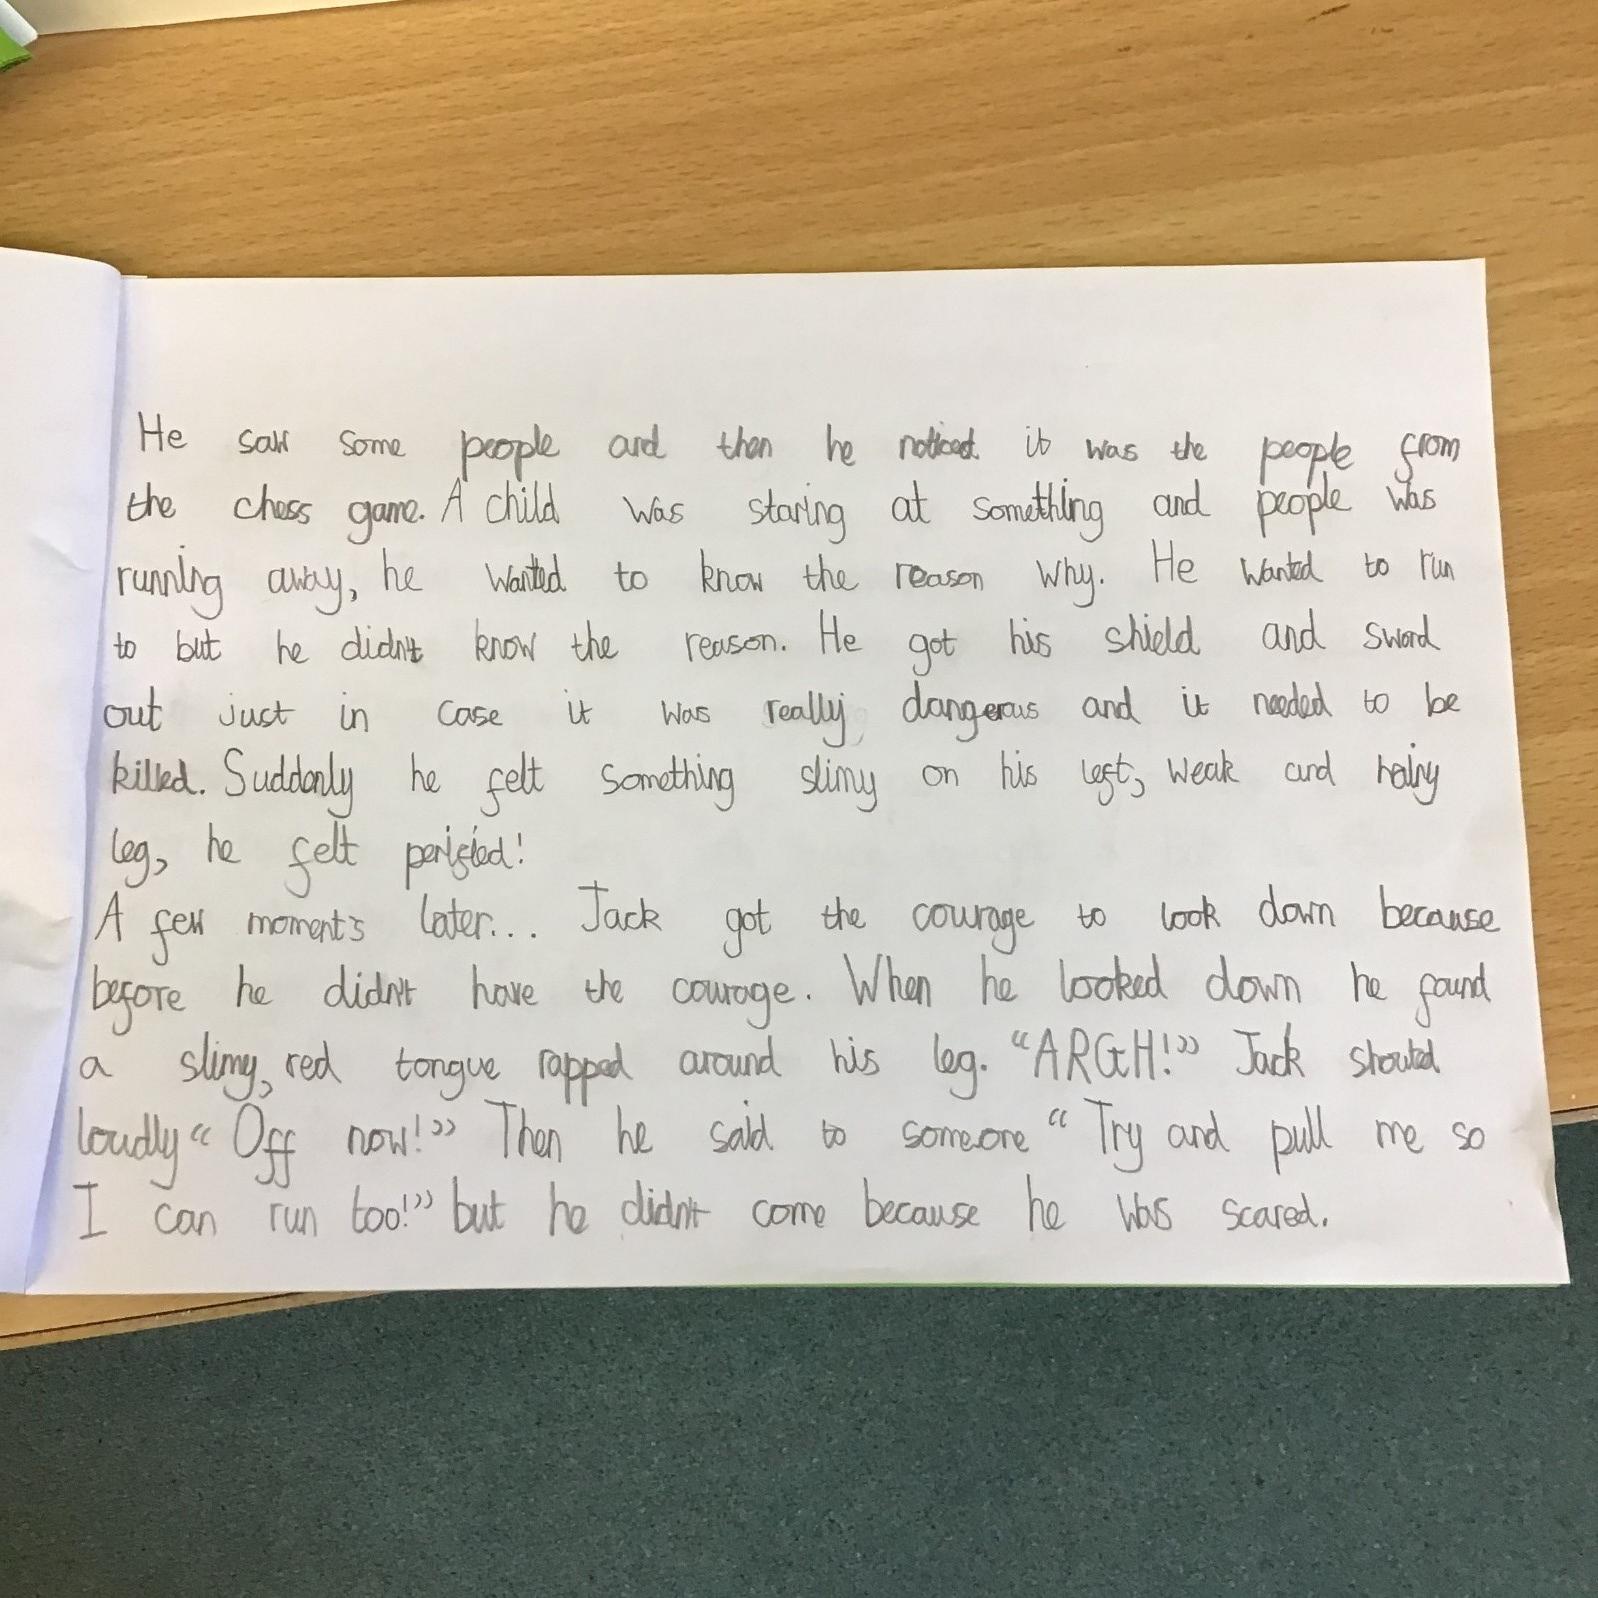 He saw some people and then he noticed it was the people from
the chess game. A child was staring at something and people was
running away, he wanted to know the reason why. He wanted to run
to but he didn't know the reason. He got his shield and sword
out just in case it was really dangerous and it needed to be
killed. Suddenly he felt something slimy on his left, weak and hairy
leg, he felt perified!
A few moment's later... Jack got the courage to look down because
before he didn't have the courage. When he looked down he found
a slimy, red tongue rapped around his leg. "ARGH!" Jack shouted
loudly "Off now!" Then he said to someone "Try and pull me so
I can run too!" but he didn't come because he was scared.